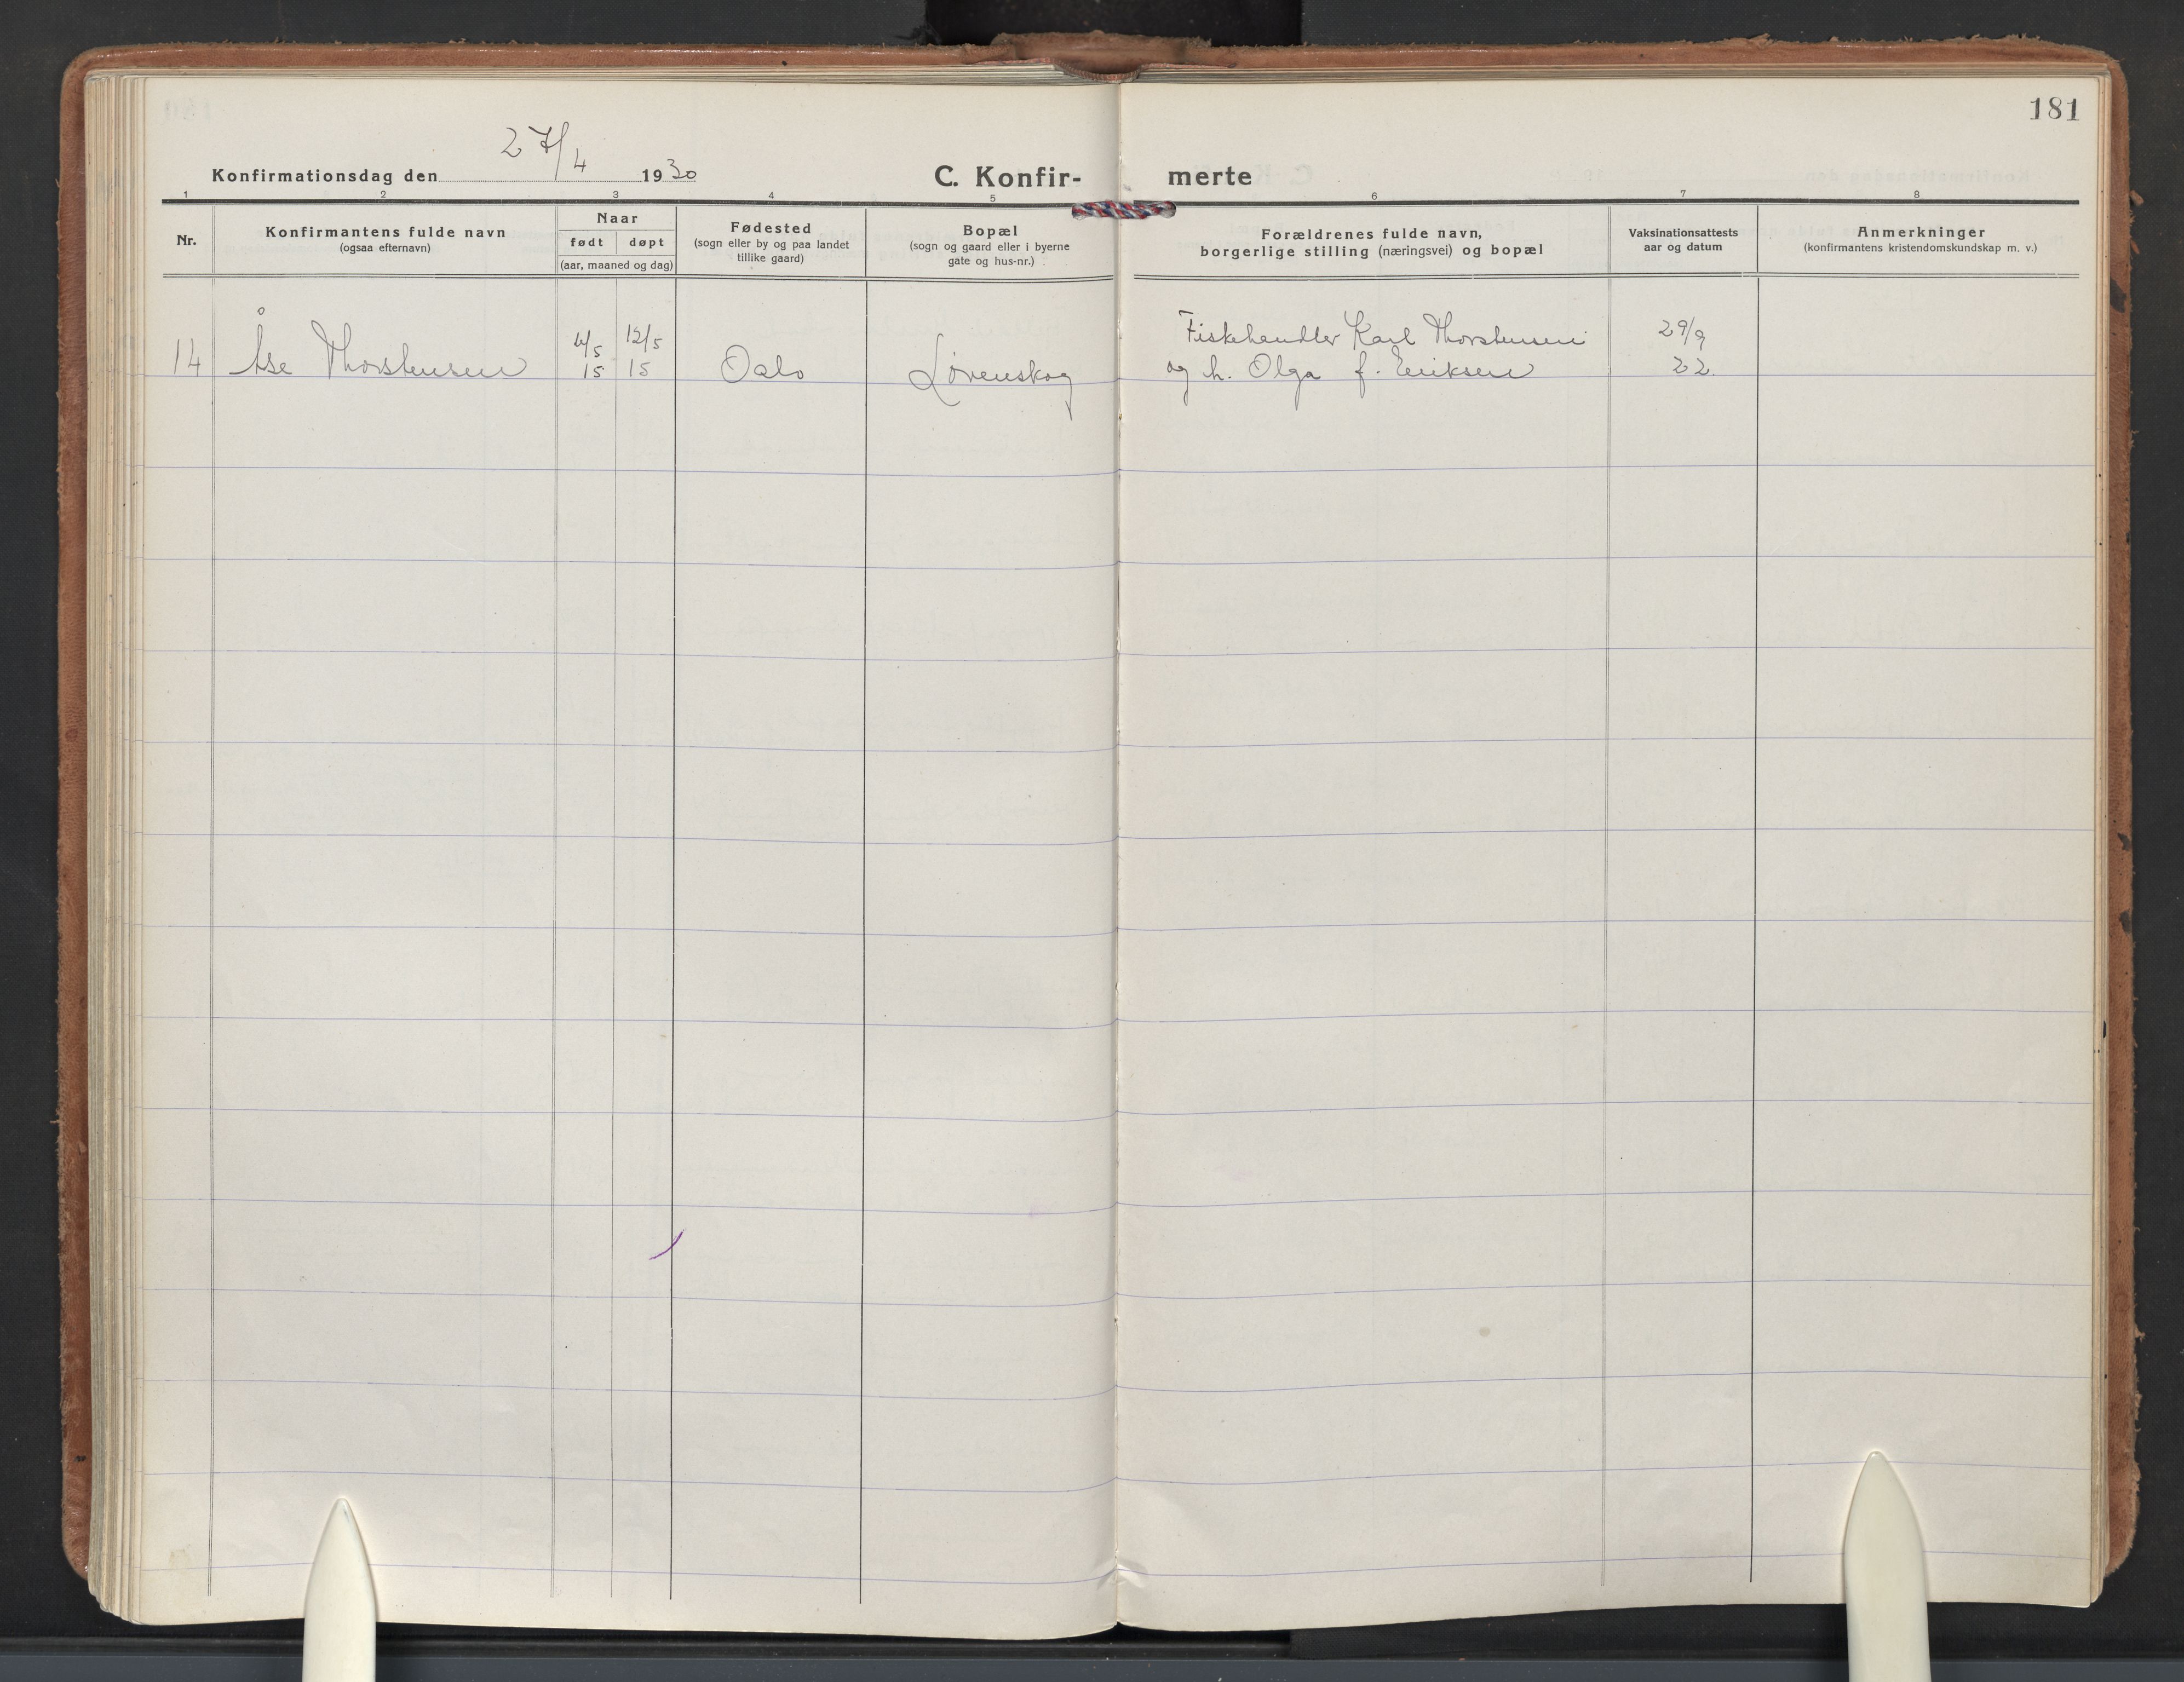 181
Konfirmationsdag den 27/4 1930
C. Konfir-
merte
1 2 3 4 5 6 7 8
Nr.
Konfirmantens fulde navn
(ogsaa efternavn)
Naar
født døpt
(aar, maaned og dag)
Fødested
(sogn eller by og paa landet
tillike gaard)
Bopæl
(sogn og gaard eller i byerne
gate og hus-nr.)
Forældrenes fulde navn,
borgerlige stilling (næringsvei) og bopæl
Vaksinationsattests
aar og datum
Anmerkninger
(konfirmantens kristendomskundskap m. v.)
12/5 Fiskehandler Karl Thorstensen 29/9
14 Åse Thorstensen 15 15 Oslo Lørenskog og h. Olga f. Eriksen 22.